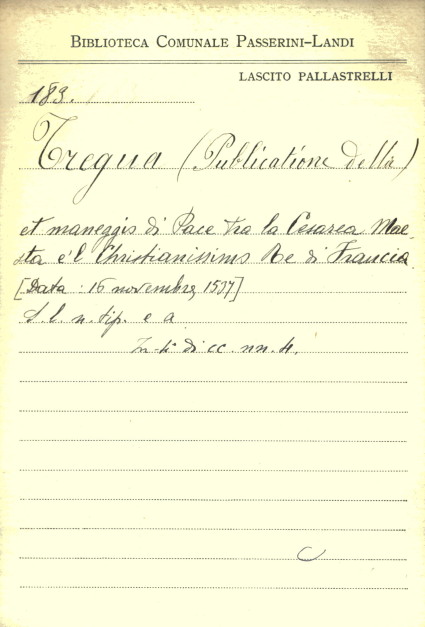 BIBLIOTECA COMUNALE PASSERINI-LANDI
LASCITO PALLASTRELLI
183.
Tregua (Publicatione della)
et maneggio di Pace tra la Cesarea Mae-
sta e'l Christianissimo Re di Francia
[Data : 16 novembre 1537]
S. l. n. tip. e a
In-4° di cc. nn. 4.
C